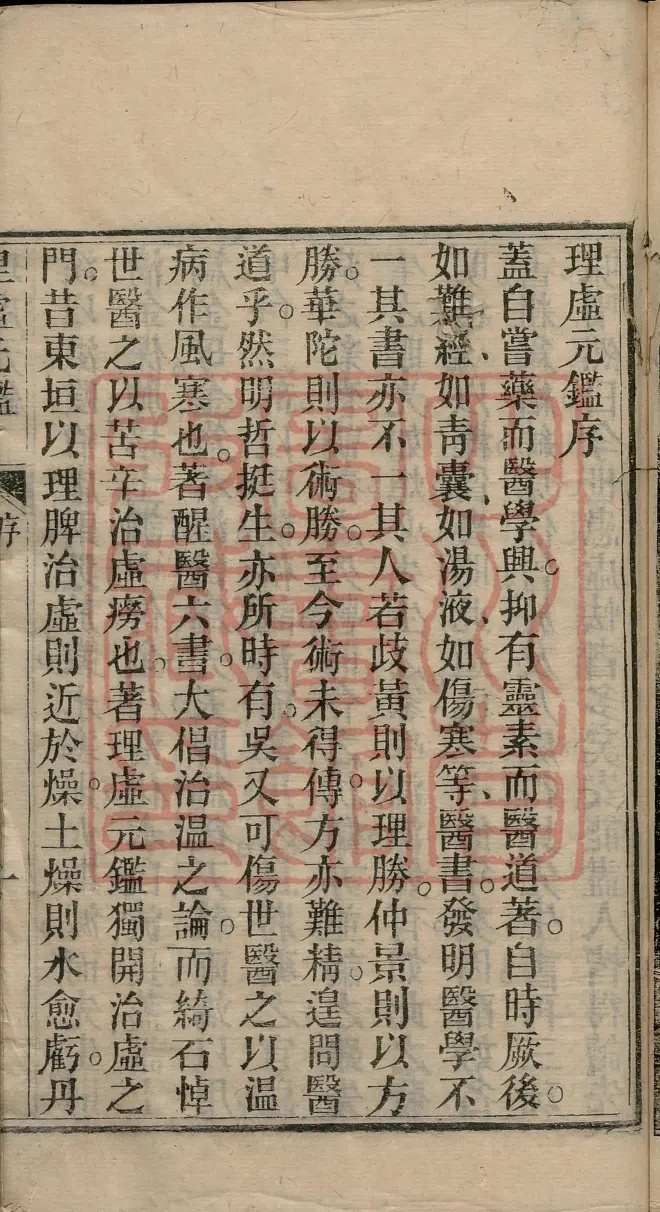 理虛元鑑序
蓋自嘗藥而醫學興。抑有靈素而醫道著。自時厥後。
如難經、如靑囊、如湯液、如傷寒等、醫書。發明醫學不
一其書亦不一其人若歧黃則以理勝。仲景則以方
勝。華陀則以術勝。至今術未得傳。方亦難精。遑問醫
道乎。然明哲挺生。亦所時有。吳又可傷世醫之以溫
病作風寒也。著醒醫六書。大倡治溫之論。而綺石悼
世醫之以苦辛治虛癆也。著理虛元鑑獨開治虛之
門。昔東垣以理脾治虛則近於燥。土燥則水愈虧。丹
理虛元鑑
序
一